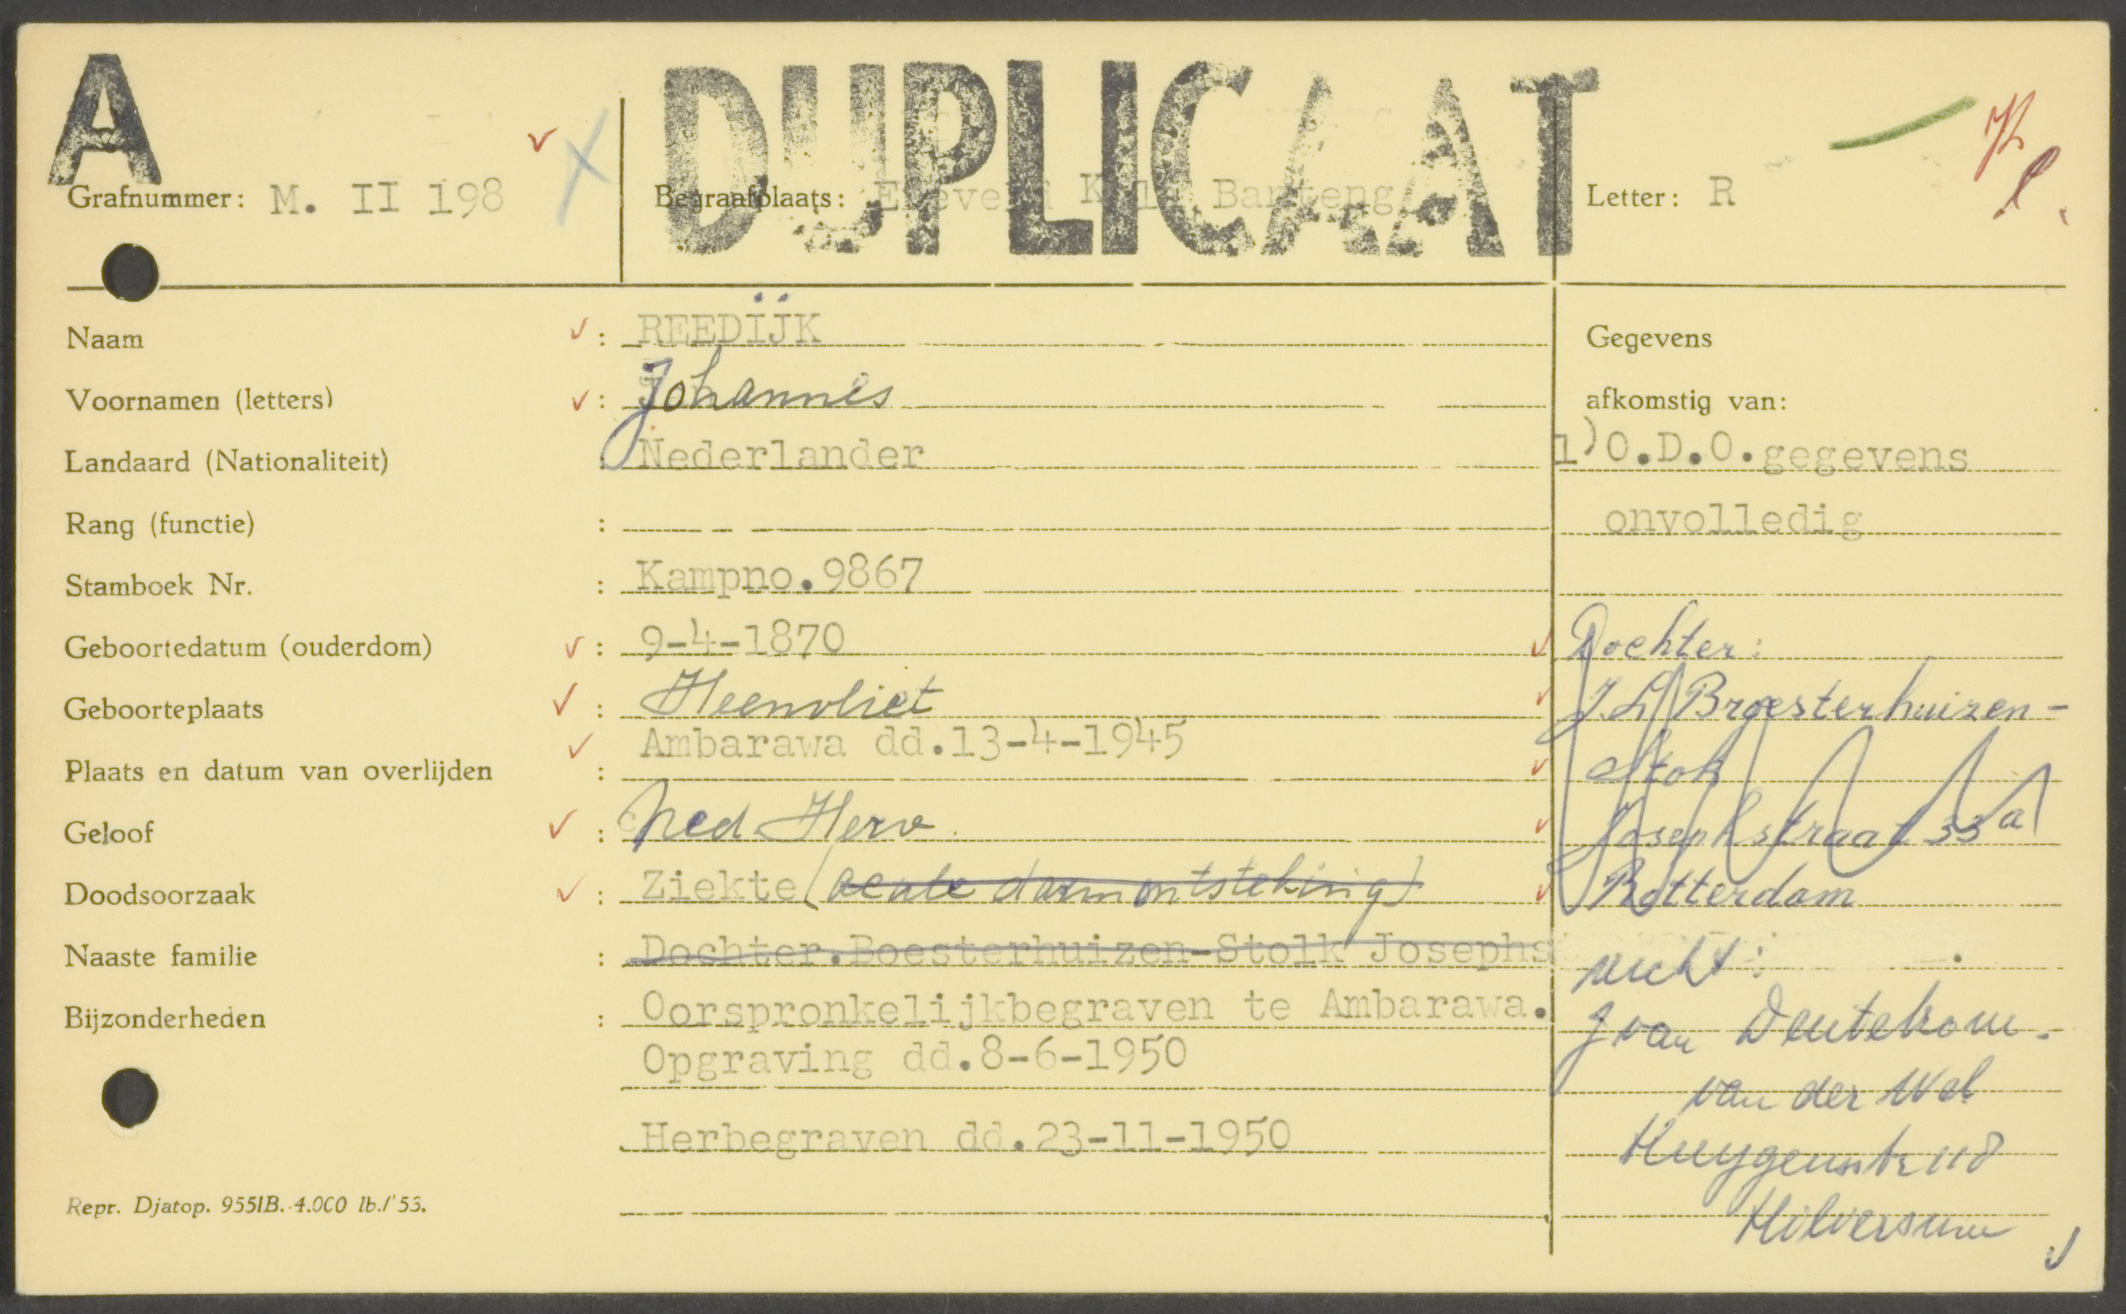 A
DUPLICAAT
Grafnummer: M. II 198
Begraafplaats: Ereveld Kali Banteng
Letter: R
Naam : REEDIJK
Voornamen (letters) : Johannes
Landaard (Nationaliteit) : Nederlander
Rang (functie) : --
Stamboek Nr. : Kampno.9867
Geboortedatum (ouderdom) : 9-4-1870
Geboorteplaats : Heenvliet
Plaats en datum van overlijden : Ambarawa dd.13-4-1945
Geloof : Ned Herv.
Doodsoorzaak : Ziekte (acute darmontsteking)
Naaste familie : Dochter.Boesterhuizen-Stolk Josephs
Bijzonderheden : Oorspronkelijkbegraven te Ambarawa.
Opgraving dd.8-6-1950
Herbegraven dd.23-11-1950
Repr. Djatop. 9551B. 4.000 lb./'53.
Gegevens
afkomstig van:
1) O.D.O.gegevens
onvolledig
Dochter:
J.L. Broesterhuizen-
Stok
Josephstraat 33a
Rotterdam
nicht:
J van Deutekom-
van der Wel
Huygenstr 118
Hilversum